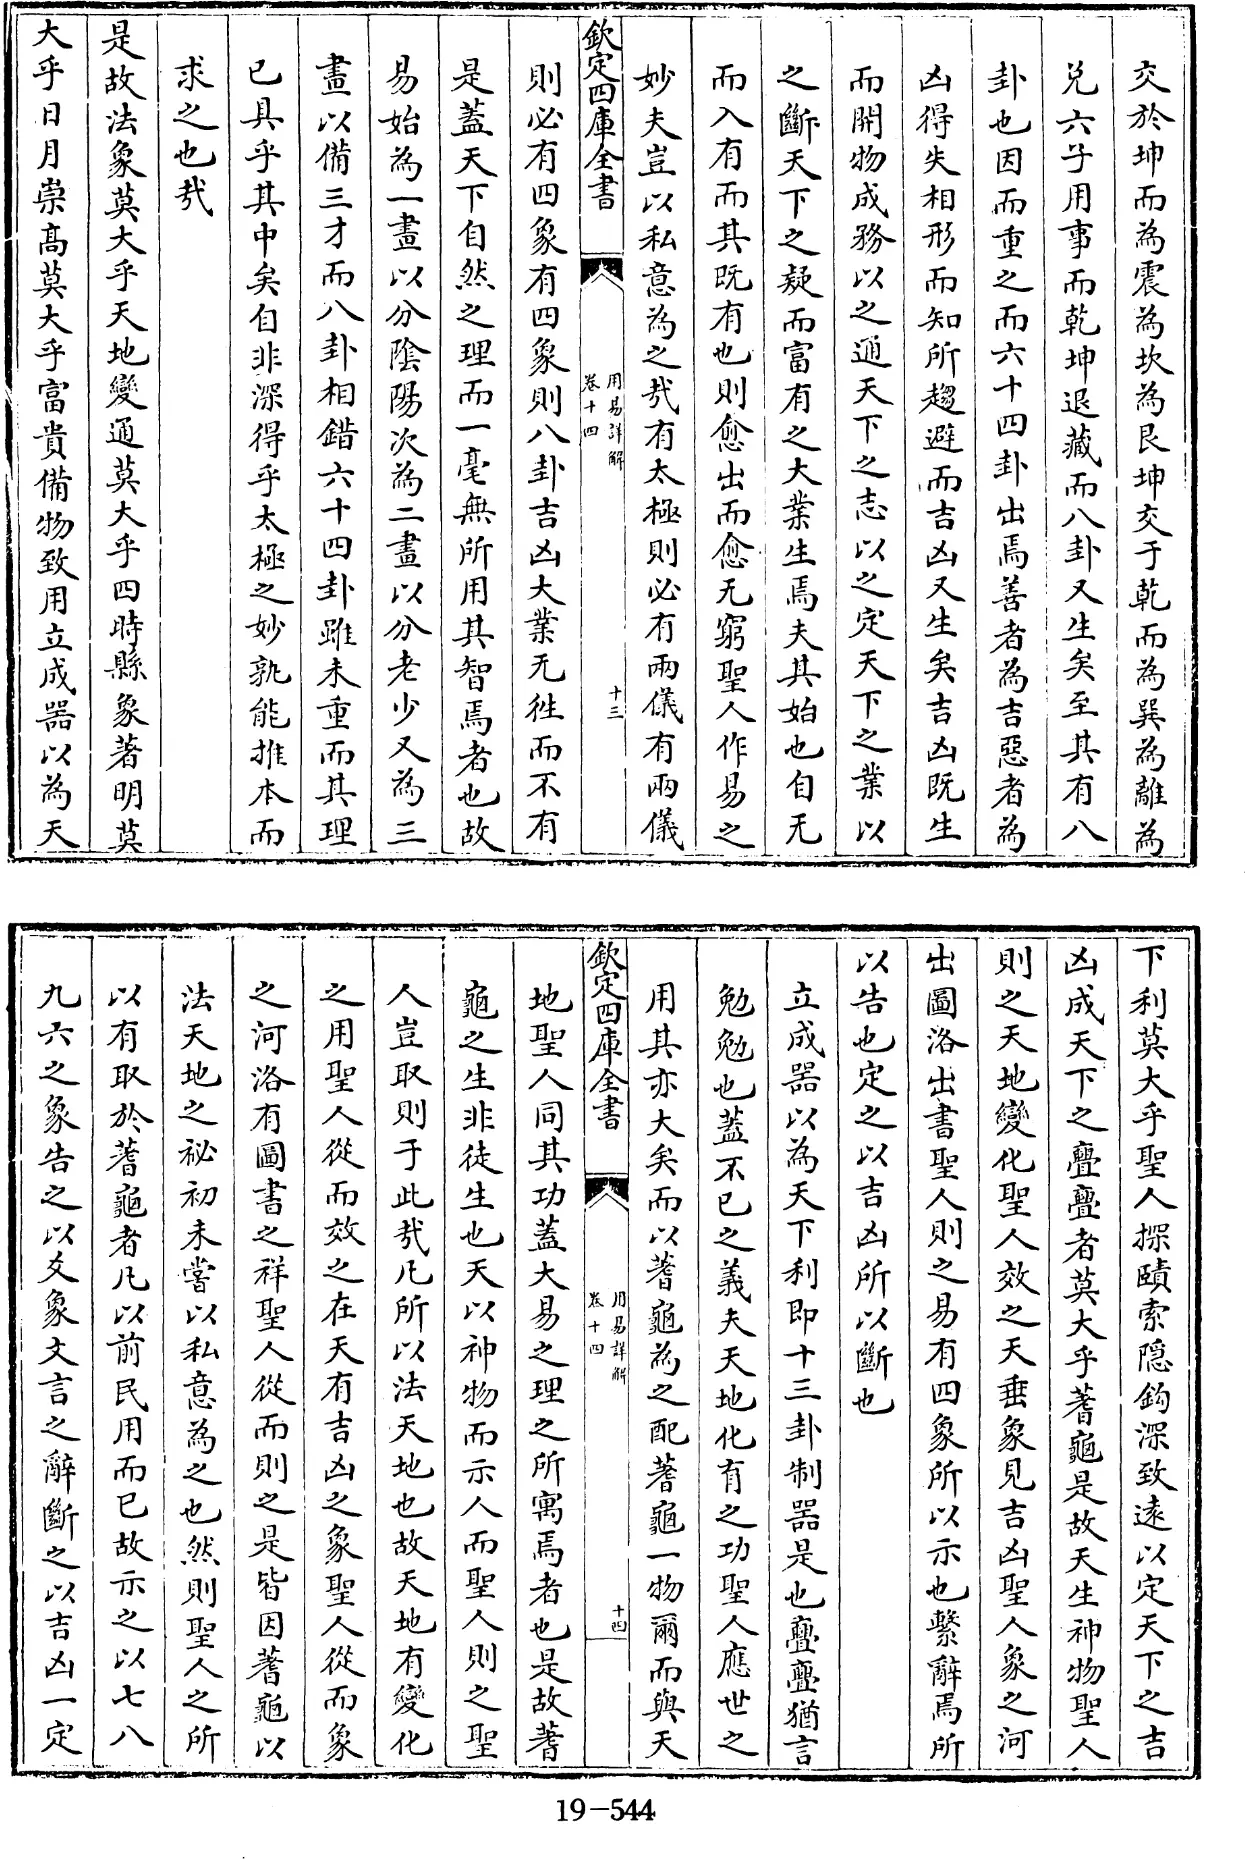 交於坤而為震為坎為艮坤交于乾而為巽為離為
兌六子用事而乾坤退藏而八卦又生矣至其有八
卦也因而重之而六十四卦出焉善者為吉惡者為
凶得失相形而知所趨避而吉凶又生矣吉凶既生
而開物成務以之通天下之志以之定天下之業以
之斷天下之疑而富有之大業生焉夫其始也自无
而入有而其既有也則愈出而愈无窮聖人作易之
妙夫豈以私意為之㢤有太極則必有兩儀有兩儀
欽定四庫全書
用易詳解
卷十四
十三
則必有四象有四象則八卦吉凶大業无徃而不有
是蓋天下自然之理而一毫無所用其智焉者也故
易始為一畫以分陰陽次為二畫以分老少又為三
畫以備三才而八卦相錯六十四卦雖未重而其理
已具乎其中矣自非深得乎太極之妙孰能推本而
求之也㢤
是故法象莫大乎天地變通莫大乎四時縣象著明莫
大乎日月崇髙莫大乎富貴備物致用立成器以為天
下利莫大乎聖人探賾索隠鈎深致逺以定天下之吉
凶成天下之亹亹者莫大乎蓍龜是故天生神物聖人
則之天地變化聖人效之天垂象見吉凶聖人象之河
出圖洛出書聖人則之易有四象所以示也繫辭焉所
以告也定之以吉凶所以斷也
立成器以為天下利即十三卦制器是也亹亹猶言
勉勉也蓋不已之義夫天地化有之功聖人應世之
用其亦大矣而以蓍龜為之配蓍龜一物爾而與天
欽定四庫全書
用易詳解
卷十四
十四
地聖人同其功蓋大易之理之所寓焉者也是故蓍
龜之生非徒生也天以神物而示人而聖人則之聖
人豈取則于此㢤凡所以法天地也故天地有變化
之用聖人從而效之在天有吉凶之象聖人從而象
之河洛有圖書之祥聖人從而則之是皆因蓍龜以
法天地之祕初未嘗以私意為之也然則聖人之所
以有取於蓍龜者凡以前民用而已故示之以七八
九六之象告之以爻象文言之辭斷之以吉凶一定
19-544